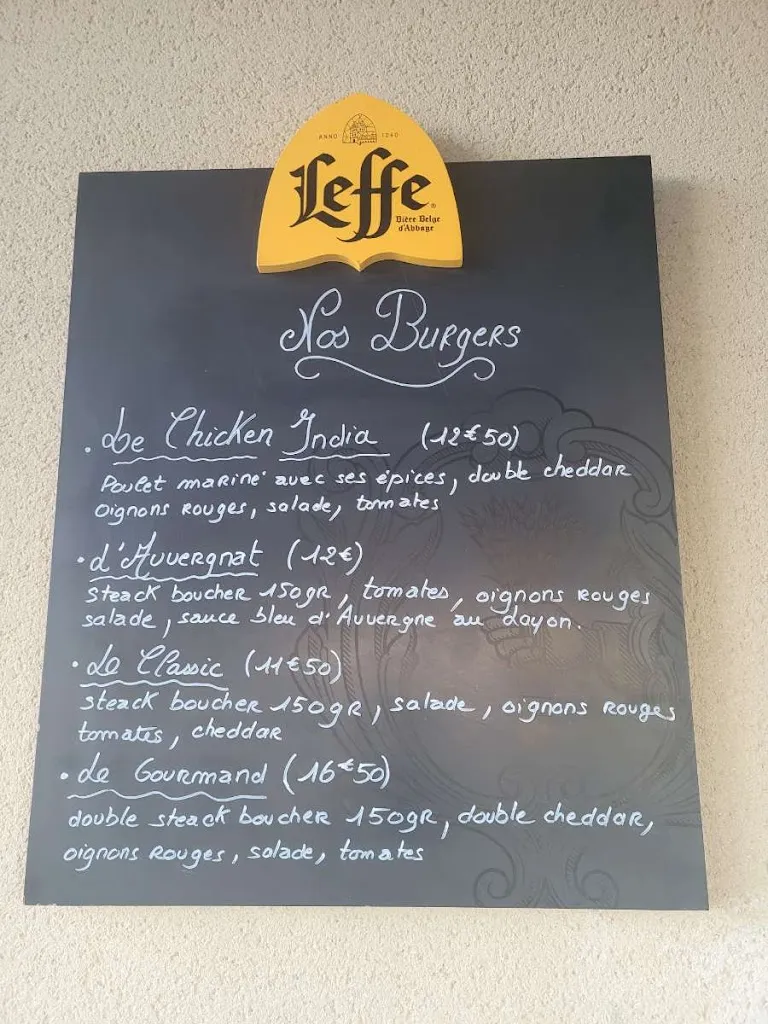 ANNO 1240
Leffe
Bière Belge
d'Abbaye
Nos Burgers
. Le Chicken India (12€50)
Poulet mariné avec ses épices, double cheddar
oignons rouges, salade, tomates
. d'Auvergnat (12€)
steack boucher 150gr, tomates, oignons rouges
salade, sauce bleu d'Auvergne au dayon.
. Le Classic (11€50)
steack boucher 150gr, salade, oignons rouges
tomates, cheddar
. Le Gourmand (16€50)
double steack boucher 150gr, double cheddar,
oignons rouges, salade, tomates